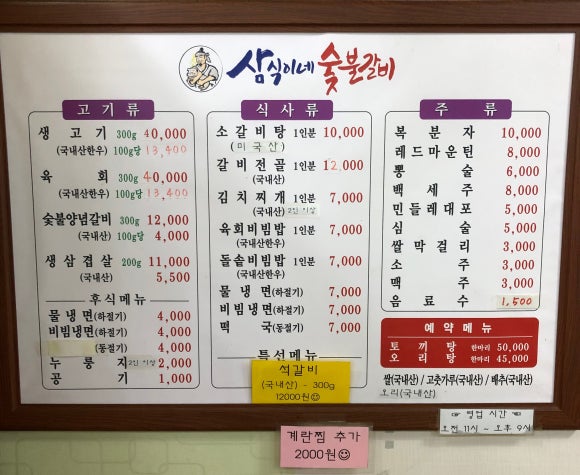 삼식이네 숯불갈비
고기류
생고기 300g 40,000
(국내산한우) 100g당 13,400
육회 300g 40,000
(국내산한우) 100g당 13,400
숯불양념갈비 300g 12,000
(국내산) 100g당 4,000
생삼겹살 200g 11,000
(국내산) 5,500
후식메뉴
물냉면(하절기) 4,000
비빔냉면(하절기) 4,000
(동절기) 4,000
누룽지 2인 이상 2,000
공기 1,000
식사류
소갈비탕 1인분 10,000
(미국산)
갈비전골 1인분 12,000
(국내산)
김치찌개 1인분 7,000
(국내산) 2인 이상
육회비빔밥 1인분 7,000
(국내산한우)
돌솥비빔밥 1인분 7,000
(국내산한우)
물냉면(하절기) 7,000
비빔냉면(하절기) 7,000
떡국(동절기) 7,000
특선메뉴
석갈비
(국내산) - 300g
12000원
계란찜 추가
2000원
주류
복분자 10,000
레드마운틴 8,000
뽕술 6,000
백세주 8,000
민들레대포 5,000
심술 5,000
쌀막걸리 3,000
소주 3,000
맥주 3,000
음료수 1,500
예약메뉴
토끼탕 한마리 50,000
오리탕 한마리 45,000
쌀(국내산) / 고춧가루(국내산) / 배추(국내산)
오리(국내산)
영업 시간
오전 11시 ~ 오후 9시